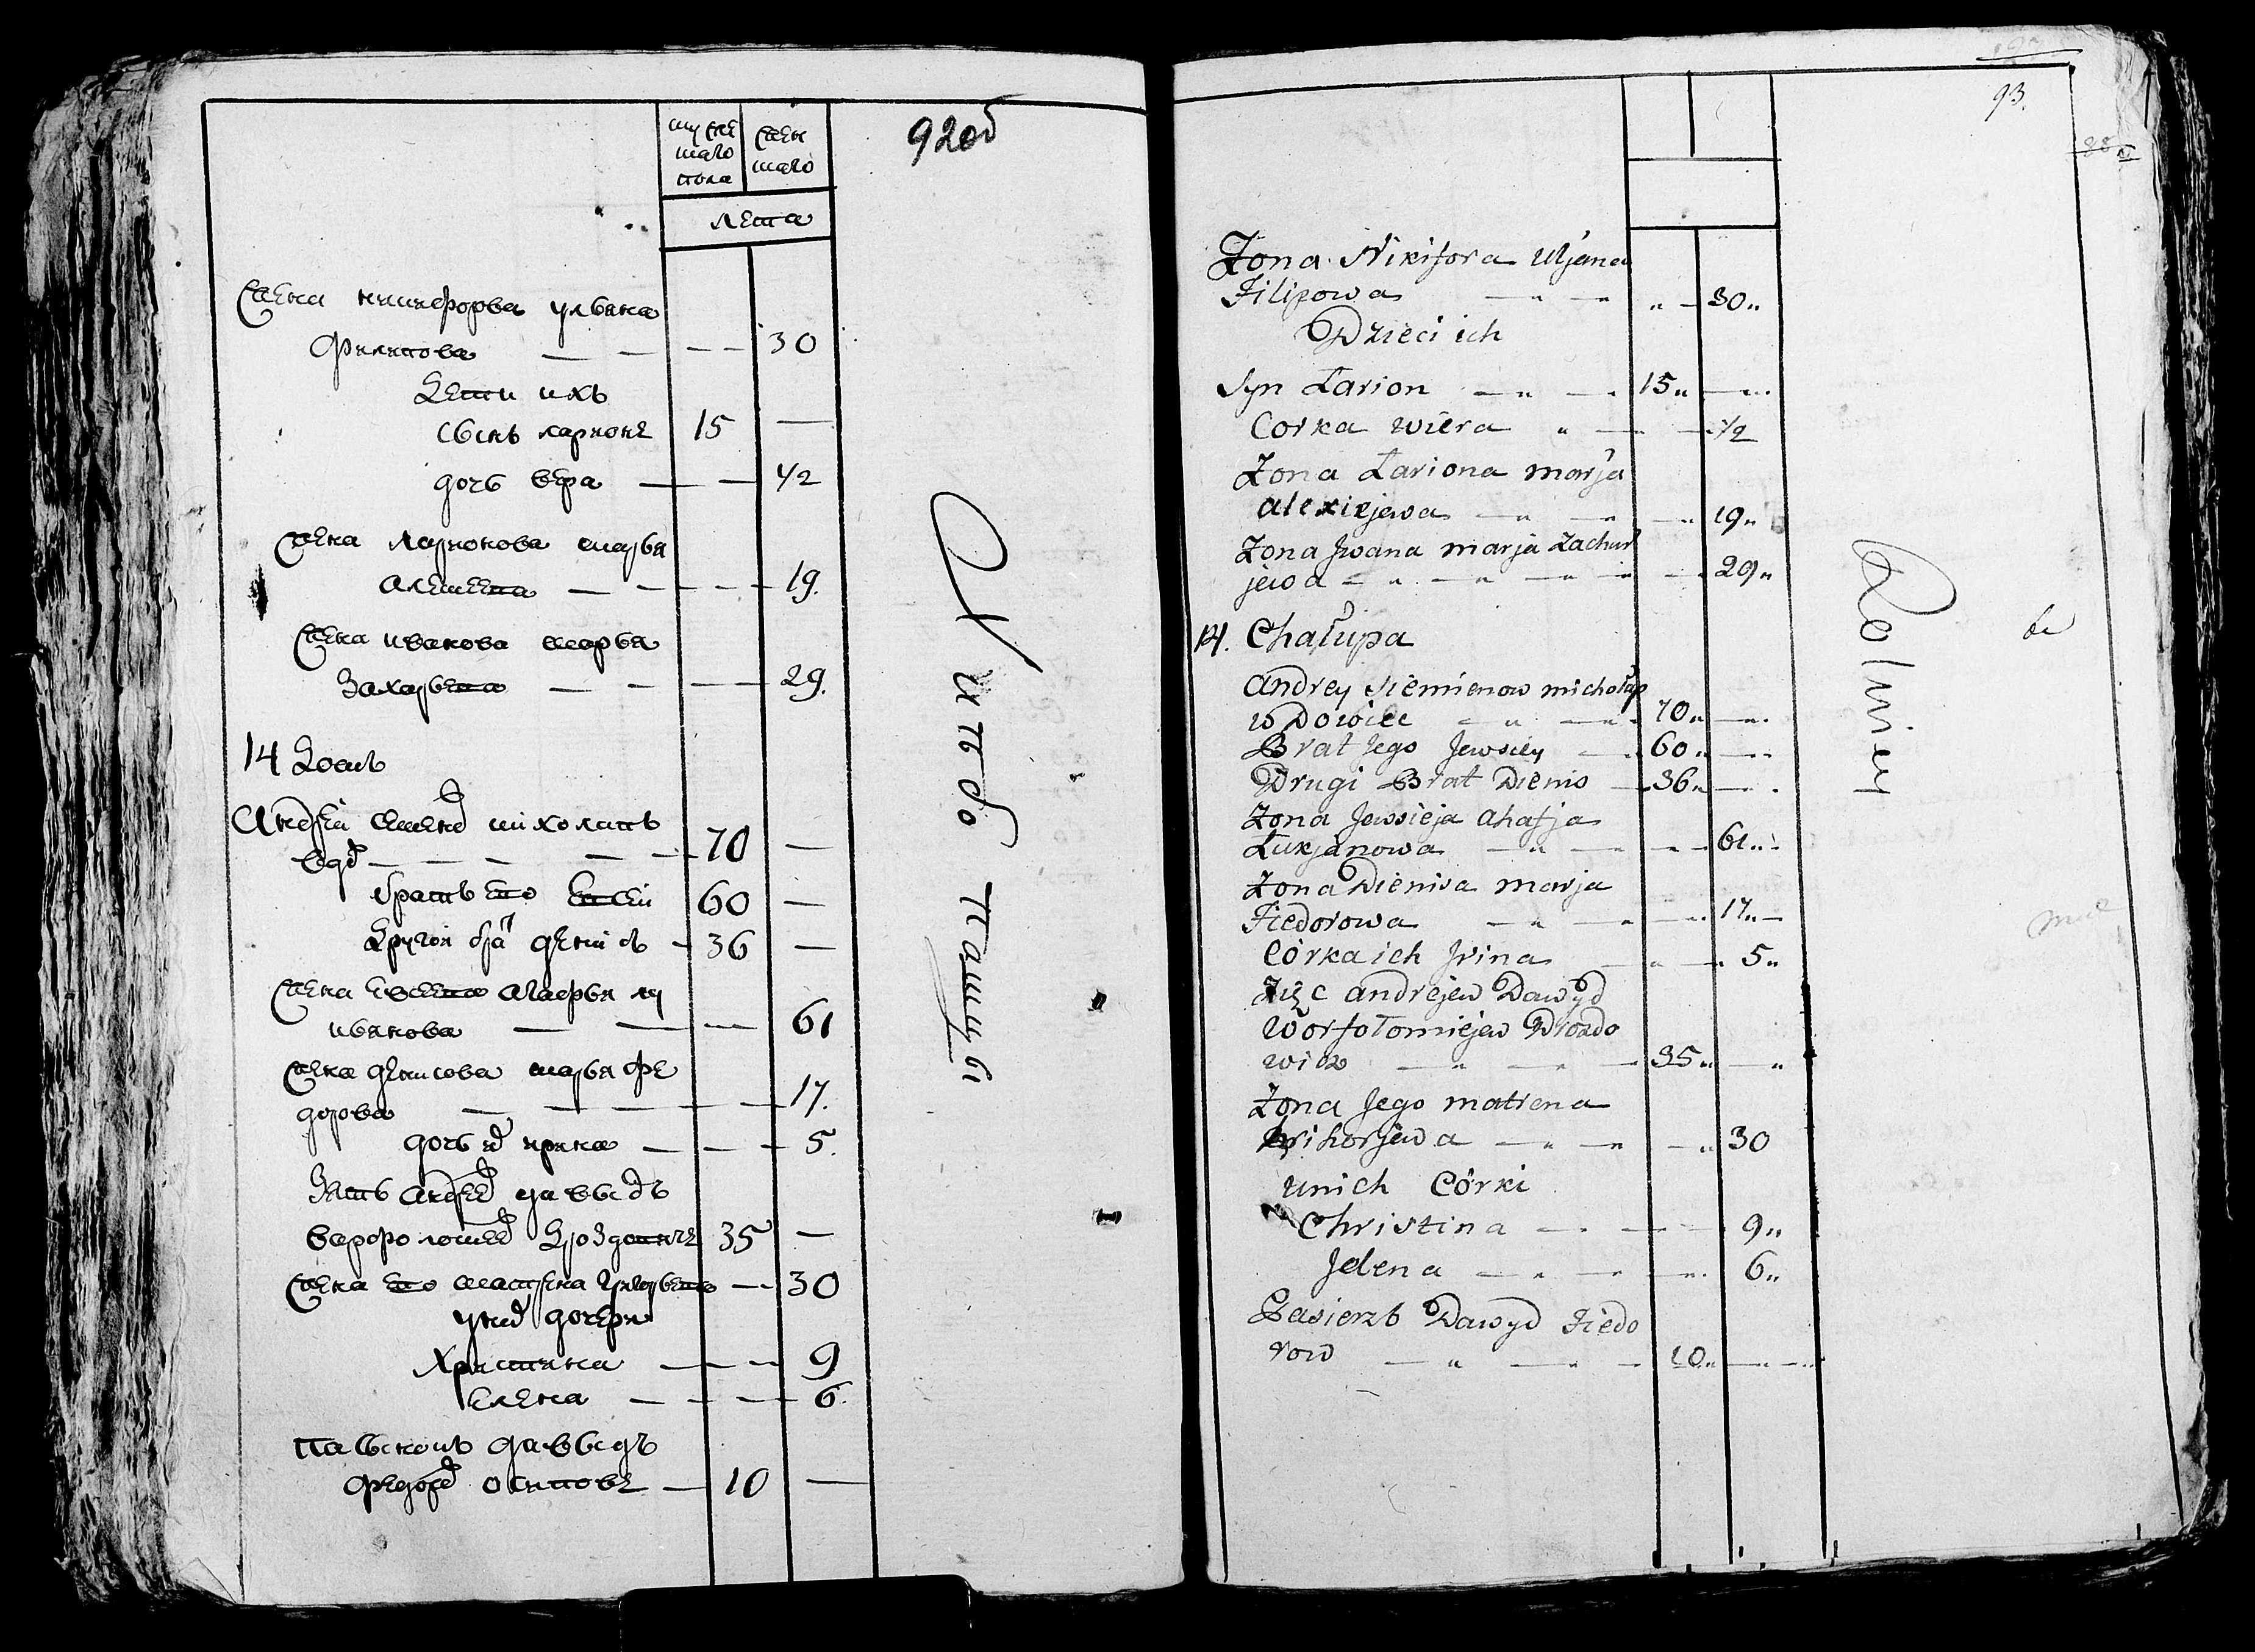 92об
мужескаго пола
женскаго
лета
жена никифорова ульяна
филипова — — — — 30
дети ихъ
сынъ ларионъ 15 —
дочь вера — — 1/2
жена ларионова марья
алексеева — — — — 19.
жена иванова марья
Захарьева — — — — 29.
14 Домъ
Андрей семенов михолапъ
вдов — — — — — 70 —
братъ его Евсей 60 —
Другой брат денисъ — 36 —
жена евсеева агафья лу
кьянова — — — 61
жена денисова марья фе
дорова — — — — — 17.
дочь их ирина — — — 5.
Зять андреев давыдъ
варфоломеев Дроздовичъ 35 —
жена его матрена григорьева — 30
у них дочери
Христина — — — 9
Елена — — — — 6.
пасынокъ давыдъ
федоров осиповъ — 10 —
93.
Żona Nikifora Uljana
Filipowa 30
Dzieci ich
Syn Łarion 15
Corka Wiera 1/2
Żona Łariona Marja
Alexiejewa 19
Żona Jwana Marja Zachar
jewa 29
14. Chałupa
Andrey Siemienow Michołap
Wdowiec 70
Brat Jego Jewsiey 60
Drugi Brat Dienis 36
Żona Jewsieja Ahafja
Łukjanowa 61
Żona Dienisa Marja
Fiedorowa 17
Córka ich Jrina 5
Zięc Andrejew Dawyd
Worfołomiejew Drozdo
wicz 35
Żona Jego Matrena
Hrihorjewa 30
U nich Córki
Christina 9
Jelena 6
Pasierzb Dawyd Fiedo
row 10